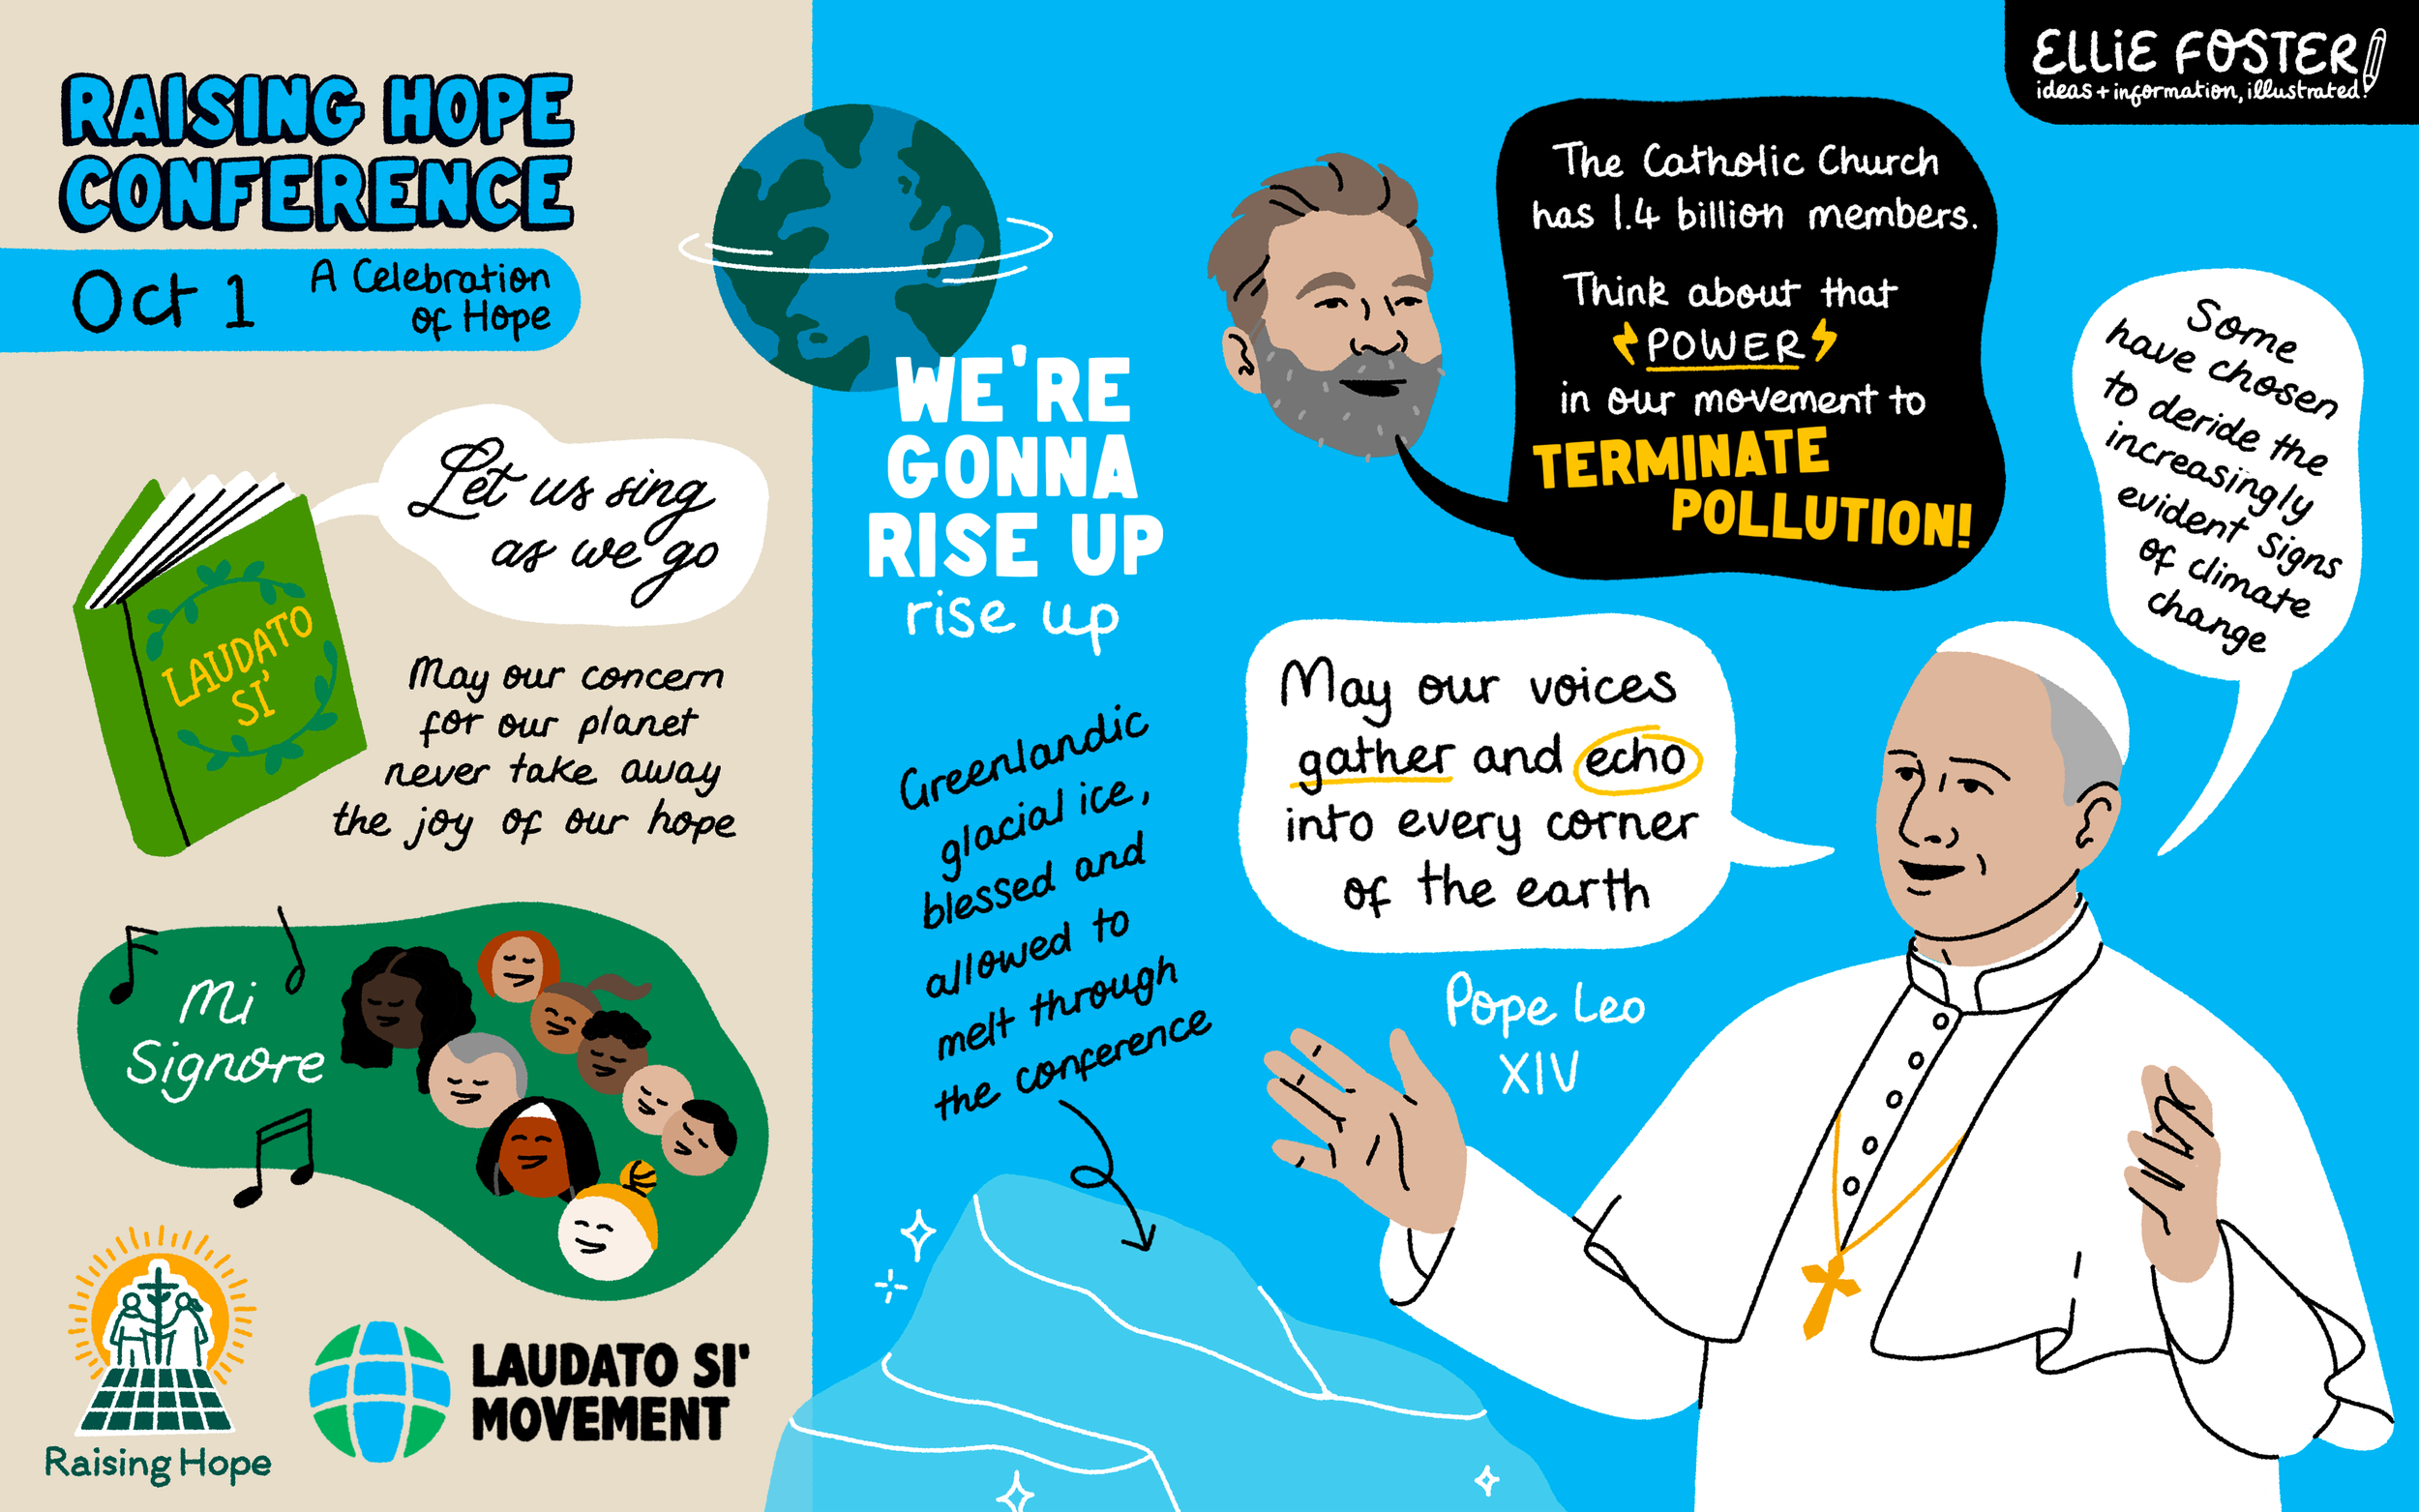 RAISING HOPE
CONFERENCE
Oct 1
A Celebration
of Hope
Let us sing
as we go
LAUDATO
SI'
May our concern
for our planet
never take away
the joy of our hope
Mi
Signore
Raising Hope
LAUDATO SI'
MOVEMENT
WE'RE
GONNA
RISE UP
rise up
Greenlandic
glacial ice,
blessed and
allowed to
melt through
the conference
The Catholic Church
has 1.4 billion members.
Think about that
POWER
in our movement to
TERMINATE
POLLUTION!
May our voices
gather and echo
into every corner
of the earth
Pope Leo
XIV
Some
have chosen
to deride the
increasingly
evident signs
of climate
change
ELLiE FOSTER
ideas + information, illustrated.